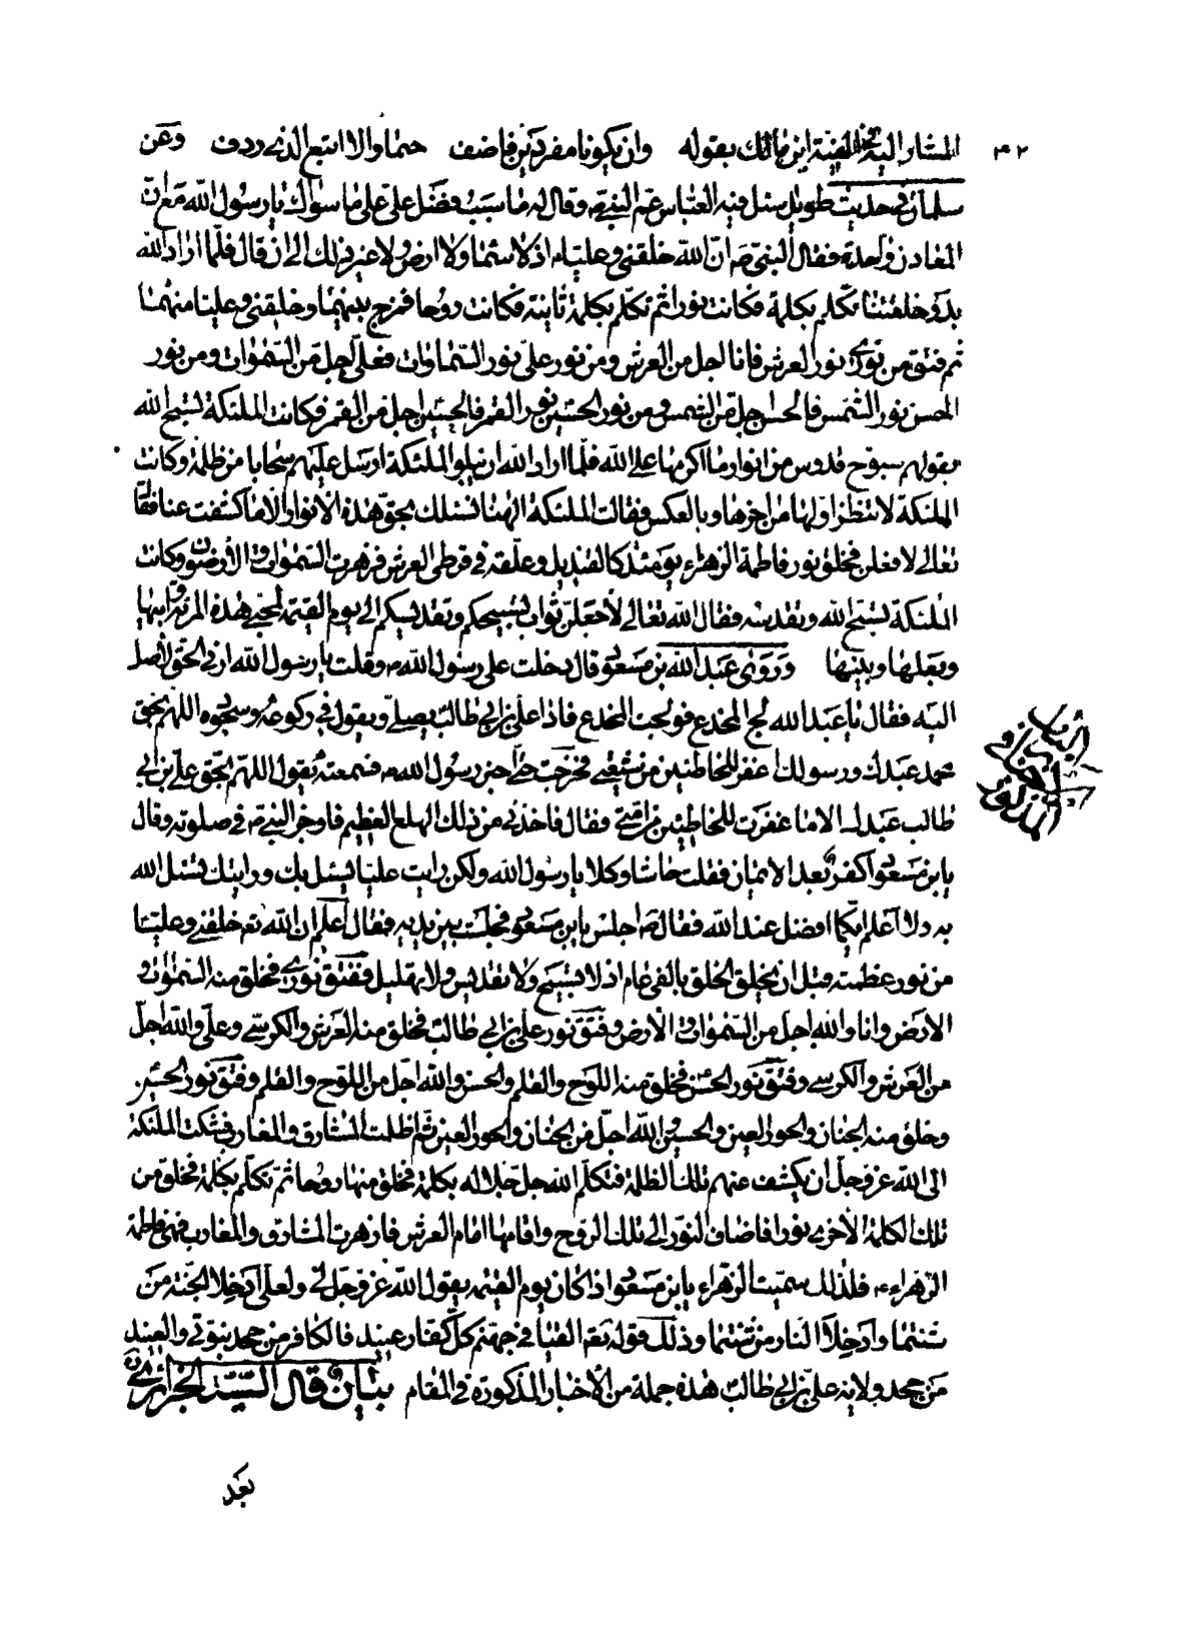 ٣٢ المشار اليه في الفية ابن مالك بقوله وان يكونا مفردين فاضف حتما والا اتبع الذى ردف وعن
سلمان في حديث طويل سئل فيه العباس عم النبي ص وقال له ما سبب فضل علي على ما سواك يا رسول الله مع ان
المعادن واحدة فقال النبي ص ان الله خلقني وعليا اذ لا سماء ولا ارض ولا غير ذلك الى ان قال فلما اراد الله
بدو خلقتنا تكلم بكلمة فكانت نورا ثم تكلم بكلمة ثانية فكانت روحا فمزج بينهما وخلقني وعليا منهما
ثم فتق من نوري نور العرش فانا اجل من العرش ومن نور علي نور السماوات فعلي اجل من السموات ومن نور
الحسن نور الشمس فالحسن اجل من الشمس ومن نور الحسين نور القمر فالحسين اجل من القمر فكانت الملئكة تسبح الله
بقولهم سبوح قدوس من انوار ما اكرمها على الله فلما اراد الله ان يبلو الملئكة ارسل عليهم سحابا من ظلمة وكانت
الملئكة لا تنظر اولها من اخرها وبالعكس فقالت الملئكة الهنا نسئلك بحق هذه الانوار الا ما كشفت عنا فقال
تعالى لافعلن فخلق نور فاطمة الزهراء يومئذ كالقنديل وعلقه في قرطي العرش فزهرت السموات والارضون وكانت
الملئكة تسبح الله وتقدسه فقال الله تعالى لاجعلن ثواب تسبيحكم وتقديسكم الى يوم القيمة لمحبي هذه المرئة وابيها
وبعلها وبنيها وروى عبد الله بن مسعود قال دخلت على رسول الله ص وقلت يا رسول الله ارني الحق لاصل
اليه فقال يا عبد الله لج المخدع فولجت المخدع فاذا علي بن ابي طالب يصلي ويقول في ركوعه وسجوده اللهم بحق
محمد عبدك ورسولك اغفر للخاطئين من شيعتي فخرجت حتى اخبر رسول الله ص فسمعته يقول اللهم بحق علي بن ابي
طالب عبدك الا ما غفرت للخاطئين من امتي وقال فاخذني من ذلك الهلع العظيم فاوجز النبي ص في صلوته وقال
يا بن مسعود اكفر بعد الايمان فقلت حاشا وكلا يا رسول الله ولكن رايت عليا يسئل بك ورايتك تسئل الله
به ولا اعلم ايكما افضل عند الله فقال ص اجلس يا بن مسعود فجلست بين يديه فقال اعلم ان الله تع خلقني وعليا
من نور عظمته قبل ان يخلق الخلق بالفي عام اذ لا تسبيح ولا تقديس ولا تهليل ففتق نوري فخلق منه السموات و
الارض وانا والله اجل من السموات والارض وفتق نور علي بن ابي طالب فخلق منه العرش والكرسي وعلي والله اجل
من العرش والكرسي وفتق نور الحسن فخلق منه اللوح والقلم والحسن والله اجل من اللوح والقلم وفتق نور الحسين
وخلق منه الجنان والحور العين والحسين والله اجل من الجنان والحور العين ثم اظلمت المشارق والمغارب فشكت الملئكة
الى الله عز وجل ان يكشف عنهم تلك الظلمة فتكلم الله جل جلاله بكلمة فخلق منها روحا ثم تكلم بكلمة فخلق من
تلك الكلمة الاخرى نورا فاضاف النور الى تلك الروح واقامها امام العرش فازهرت المشارق والمغارب فهي فاطمة
الزهراء فلذلك سميت الزهراء يا بن مسعود اذا كان يوم القيمة يقول الله عز وجل لي ولعلي ادخلا الجنة من
شئتما وادخلا النار من شئتما وذلك قوله تع القيا في جهنم كل كفار عنيد فالكافر من جحد نبوتي والعنيد
من جحد ولاية علي بن ابي طالب هذه جملة من الاخبار المذكورة في المقام بيان قال السيد الجزائري
بعد